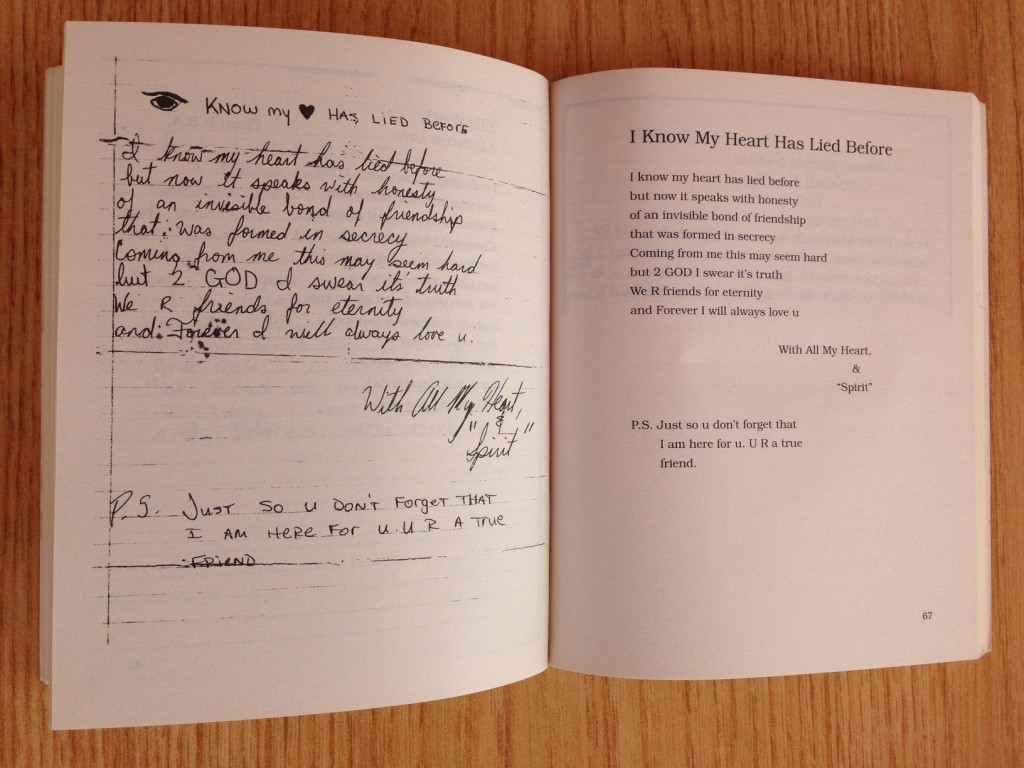 KNOW my ♥ HAS LIED BEFORE
I know my heart has lied before
but now it speaks with honesty
of an invisible bond of friendship
that was formed in secrecy
Coming from me this may seem hard
but 2 GOD I swear it's truth
We R friends for eternity
and Forever I will always love u.
With All My Heart,
&
"Spirit"
P.S. JUST SO U DON'T FORGET THAT
I AM HERE FOR U. U R A TRUE
FRIEND
I Know My Heart Has Lied Before
I know my heart has lied before
but now it speaks with honesty
of an invisible bond of friendship
that was formed in secrecy
Coming from me this may seem hard
but 2 GOD I swear it's truth
We R friends for eternity
and Forever I will always love u
With All My Heart,
&
“Spirit”
P.S. Just so u don't forget that
I am here for u. U R a true
friend.
67